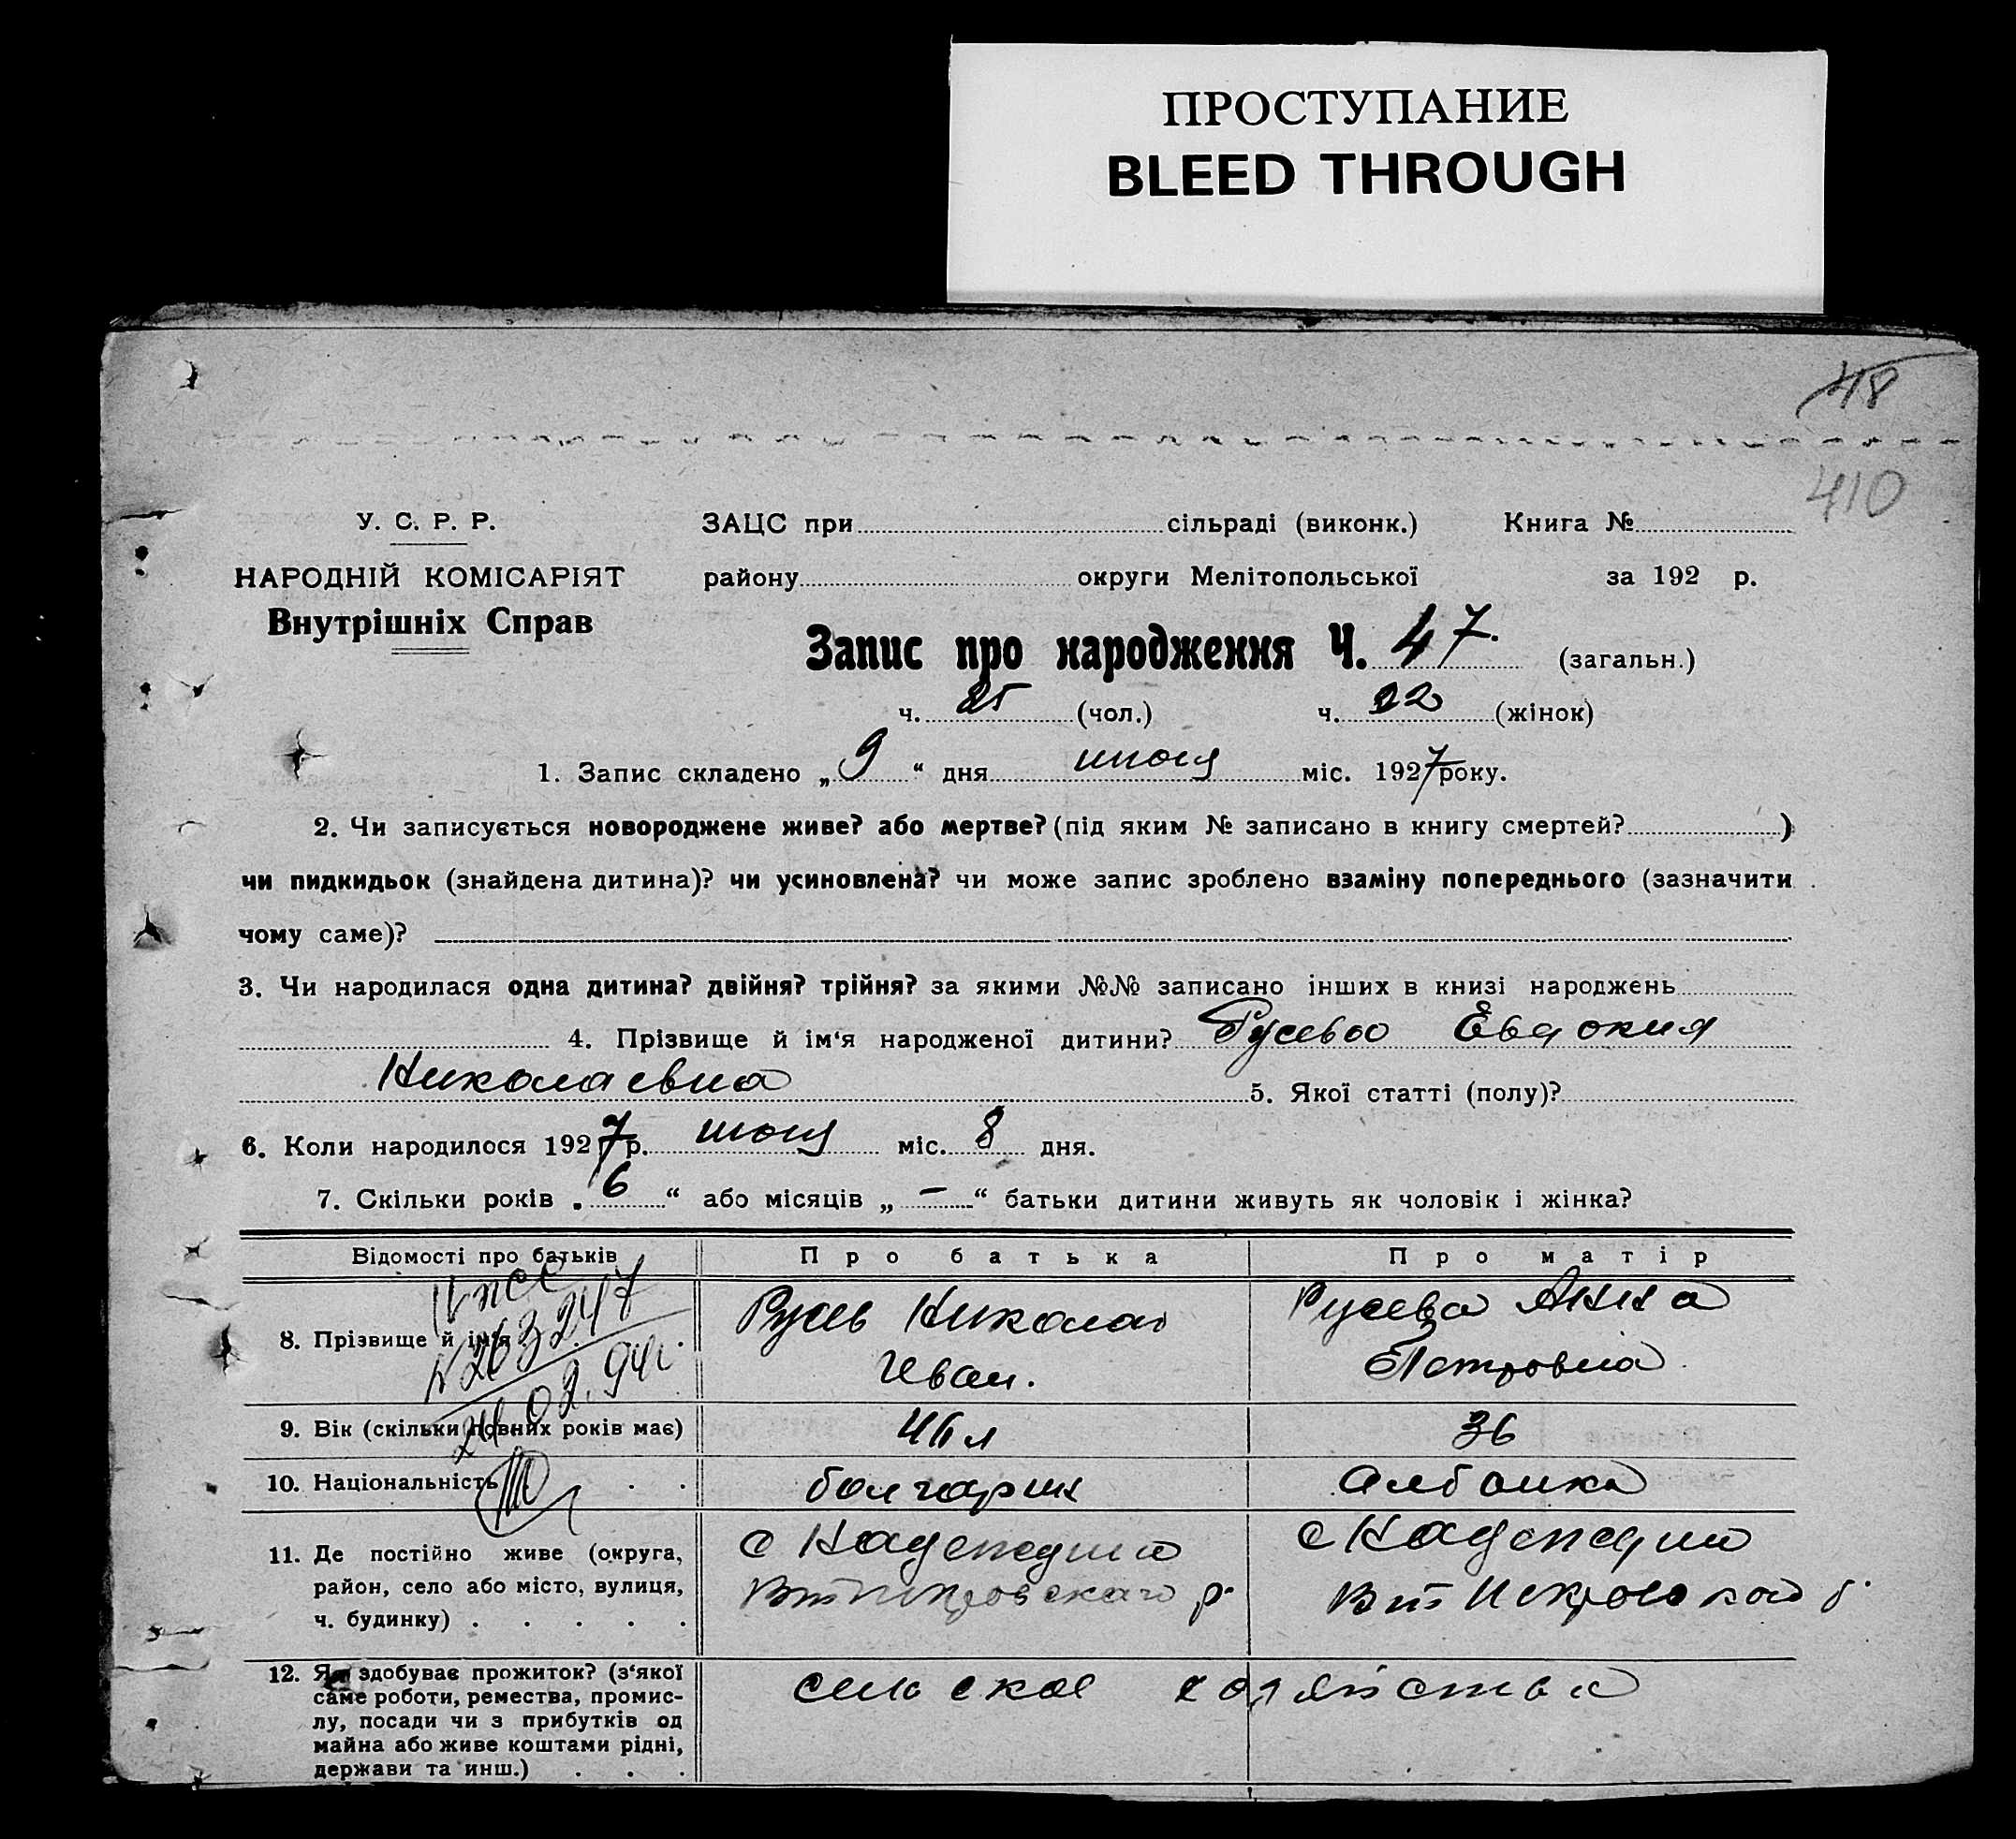 ПРОСТУПАНИЕ
BLEED THROUGH
48
410
У. С. Р. Р.
НАРОДНІЙ КОМІСАРІЯТ
Внутрішніх Справ
ЗАЦС при сільраді (виконк.) Книга №
району округи Мелітопольської за 192 р.
Запис про народження Ч. 47. (загальн.)
ч. 25 (чол.) ч. 22 (жінок)
1. Запис складено „ 9 “ дня июня міс. 1927 року.
2. Чи записується новороджене живе? або мертве? (під яким № записано в книгу смертей? )
чи пидкидьок (знайдена дитина)? чи усиновлена? чи може запис зроблено взаміну попереднього (зазначити
чому саме)?
3. Чи народилася одна дитина? двійня? трійня? за якими №№ записано інших в книзі народжень
4. Прізвище й ім‘я народженої дитини? Русева Евдокия
Николаевна 5. Якої статті (полу)?
6. Коли народилося 1927 р. июня міс. 8 дня.
7. Скільки років „ 6 “ або місяців „ — “ батьки дитини живуть як чоловік і жінка?
Відомості про батьків Про батька Про матір
8. Прізвище й ім‘я Русев Николай Русева Анна
Иван. Петровна
9. Вік (скільки повних років має) 36
10. Національність . . болгарин Албанка
11. Де постійно живе (округа, с Надеждино с Надеждино
район, село або місто, вулиця, р. р.
ч. будинку) . . . . .
12. Як здобуває прожиток? (з‘якої сельское хозяйство
саме роботи, ремества, промис-
лу, посади чи з прибутків од
майна або живе коштами рідні,
держави та инш.) . . .